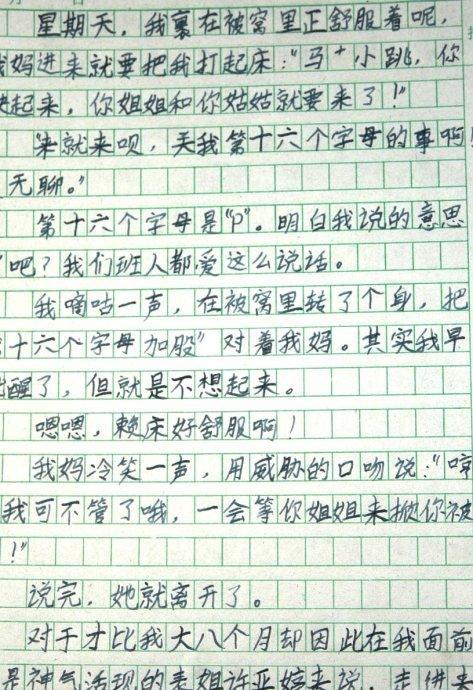 星期天，我裹在被窝里正舒服着呢，
我妈进来就要把我打起床："马小跳，你
快起来，你姐姐和你姑姑就要来了！"
"来就来呗，关我第十六个字母的事啊
无聊。"
第十六个字母是"P"。明白我说的意思
吧？我们班人都爱这么说话。
我嘀咕一声，在被窝里转了个身，把
"十六个字母加股"对着我妈。其实我早
就醒了，但就是不想起来。
嗯嗯，赖床好舒服啊！
我妈冷笑一声，用威胁的口吻说："哼
我可不管了哦，一会等你姐姐来掀你被
！"
说完，她就离开了。
对于才比我大八个月却因此在我面前
是神气活现的表姐许亚婷来说，走进来